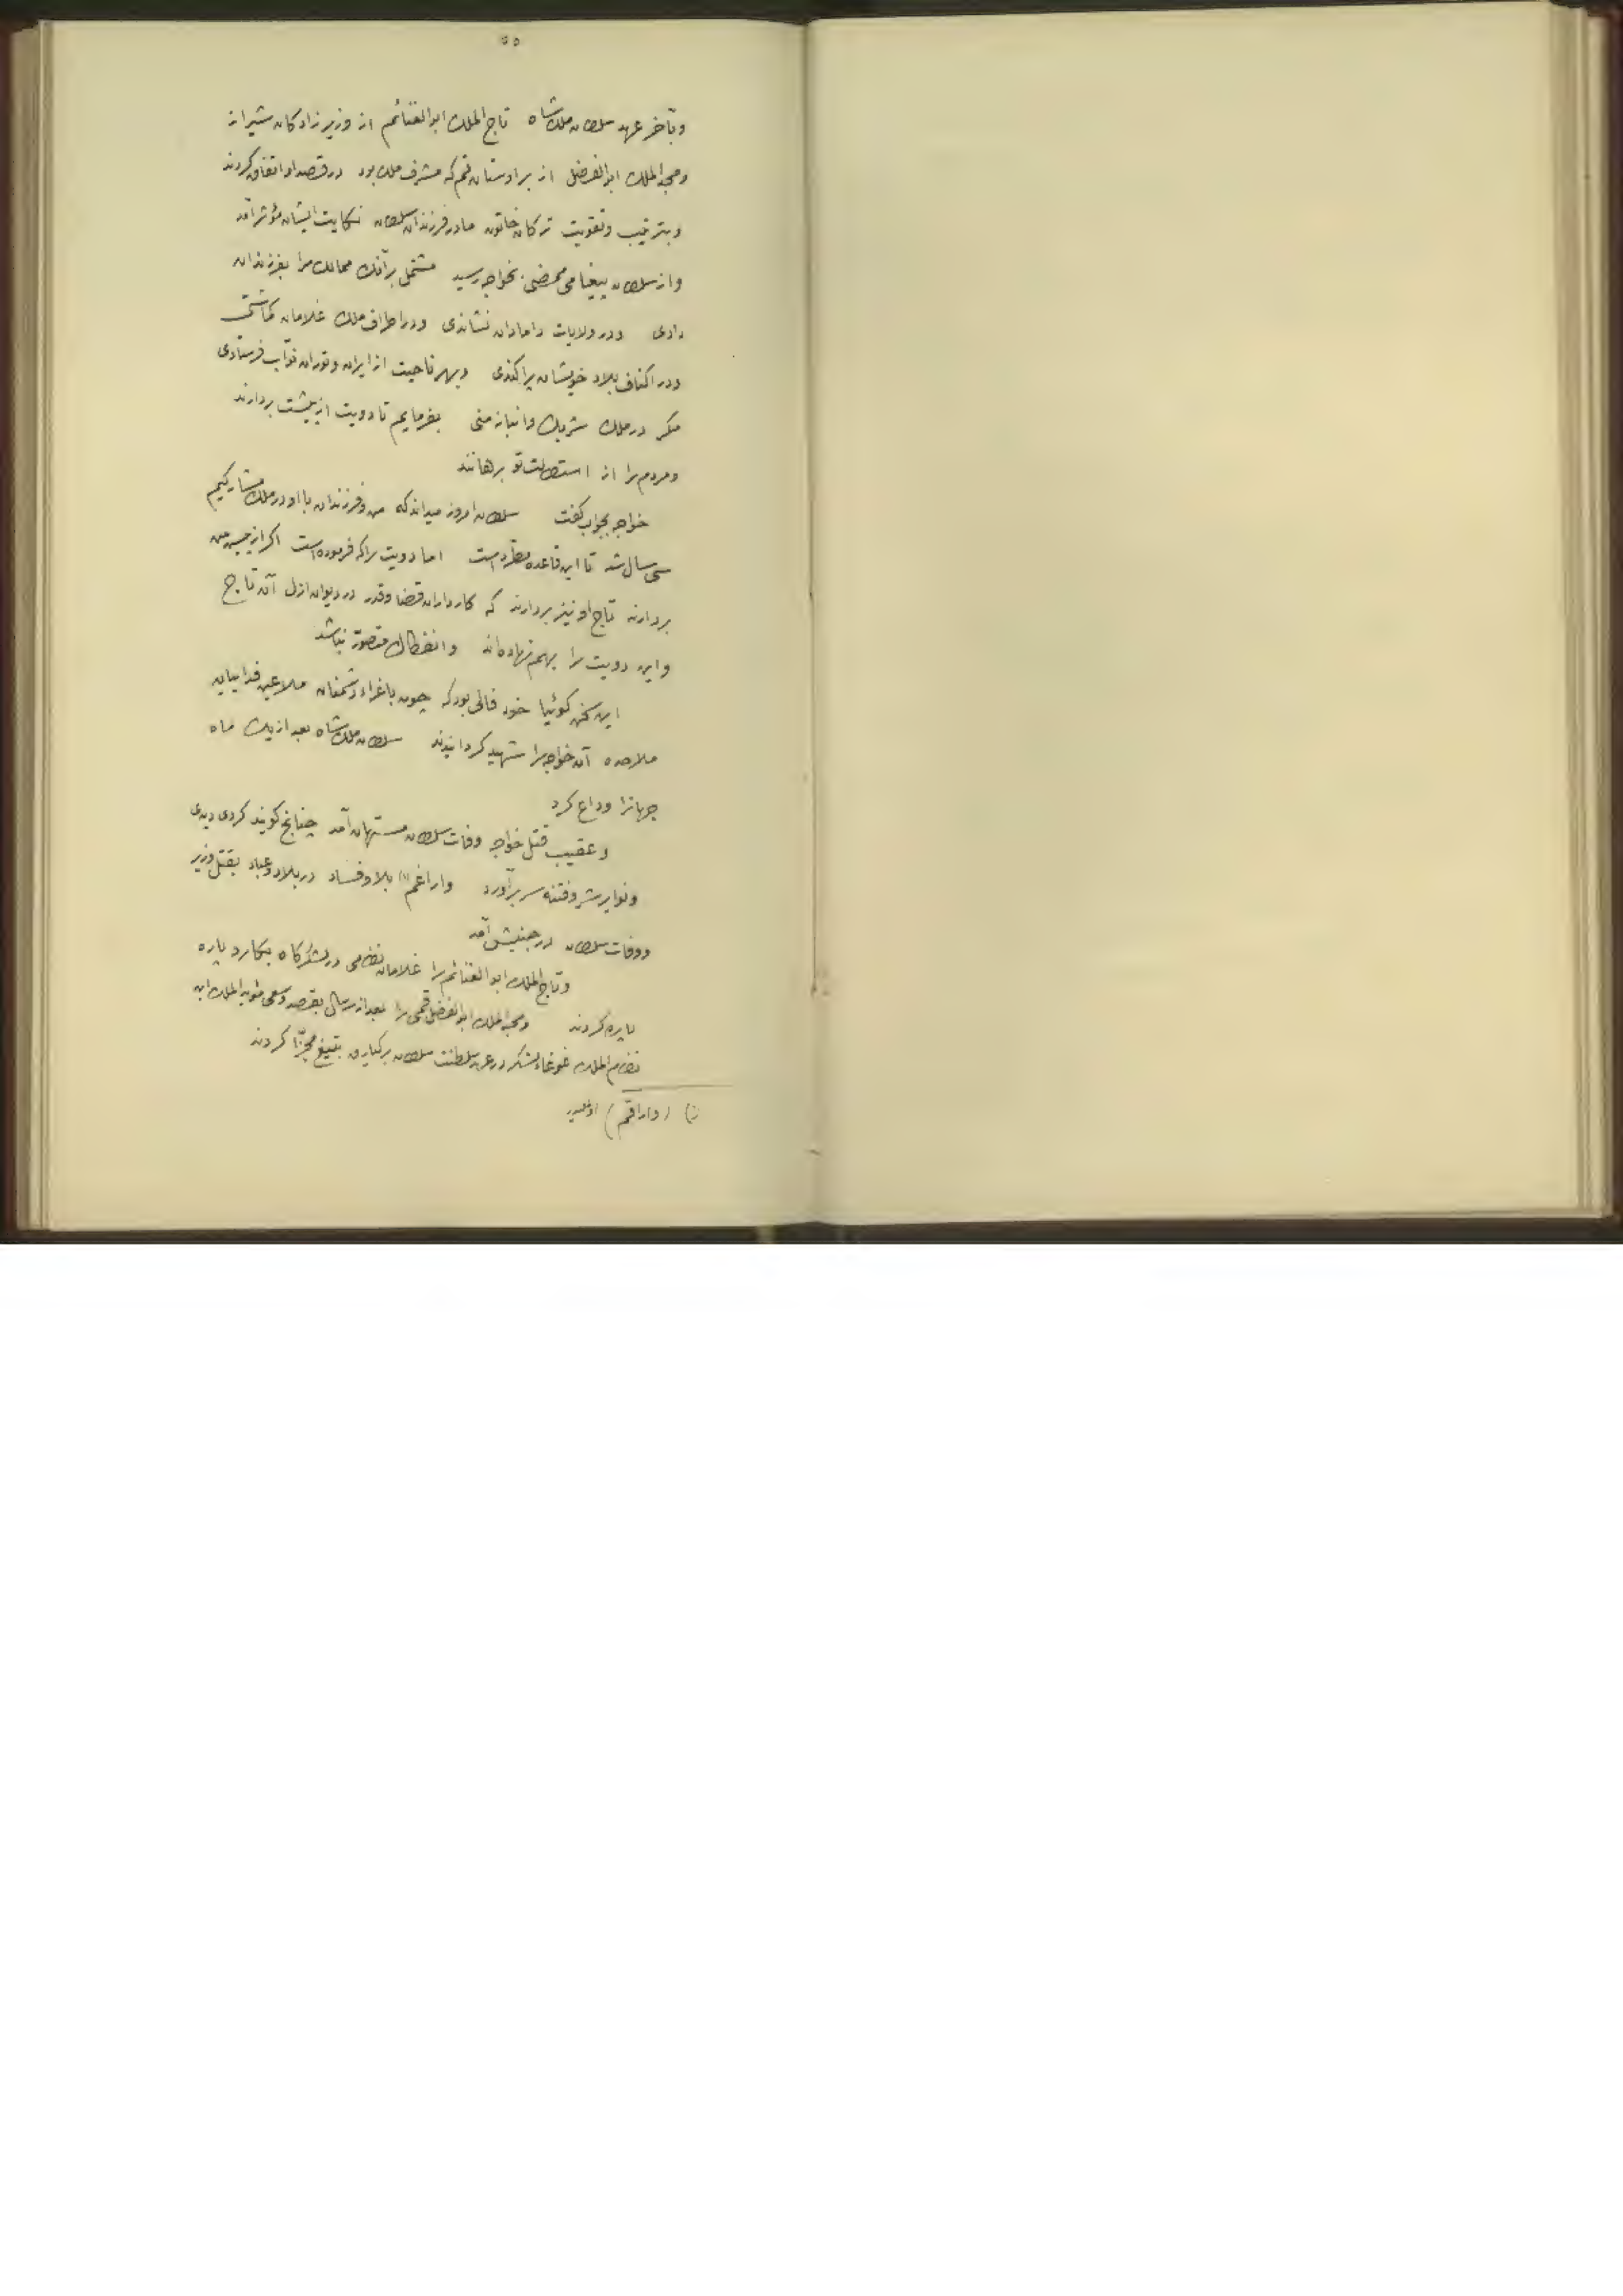 ۵۵
وبآخر عهد سلطان ملکشاه تاج الملک ابوالغنائم از وزیر زادکان شیراز
ومجد الملک ابوالفضل از براوستان قم که مشرف ملک بود در قصد او اتفاق کردند
وبترتیب وتقویت ترکان خاتون مادر فرزندان سلطان نکایت ایشان مؤثر آمد
واز سلطان پیغامی ممرضی بخواجه رسید مشتمل برآنک ممالک مرا بفرزندان
دادی ودر ولایات دامادان نشاندی ودر اطراف ملک غلامان کماشتی
ودر اکناف بلاد خویشان پراکندی وبهر ناحیت از ایران وتوران نوّاب فرستادی
مکر در ملک شریک وانباز منی بفرمایم تا دویت از پیشت بردارند
ومردم را از استطالت تو برهانند
خواجه بجواب کفت سلطان امروز میداند که من وفرزندان با او در ملک مشارکیم
سی سال شد تا این قاعده مطّرد است اما دویت را که فرموده است اکر از پیش من
بردارند تاج او نیز بردارند که کارداران قضا وقدر در دیوان ازل آن تاج
واین دویت را بهم نهاده‌اند وانفکاک متصوّر نباشد
این سخن کوئیا خود فالی بود که چون باغراء دشمنان ملاعین فداییان
ملاحده آن خواجه را شهید کردانیدند سلطان ملکشاه بعد از یک ماه
جهانرا وداع کرد
وعقیب قتل خواجه وفات سلطان مستهان آمد چنانچ کویند کردی دیدی
ونوایر شر وفتنه سر برآورد واراغم (۱) بلا وفساد در بلاد وعباد بقتل وزیر
ووفات سلطان در جنبش آمد
وتاج الملک ابوالغنائم را غلامان نظامی در لشکرکاه بکارد پاره
پاره کردند ومجد الملک ابوالفضل قمی را بعد از سالی بقصد وسعی مؤید الملک ابن
نظام الملک غوغاء لشکر در عهد سلطنت سلطان برکیارق بتیغ مجزّا کردند
(۱) (واراقم)